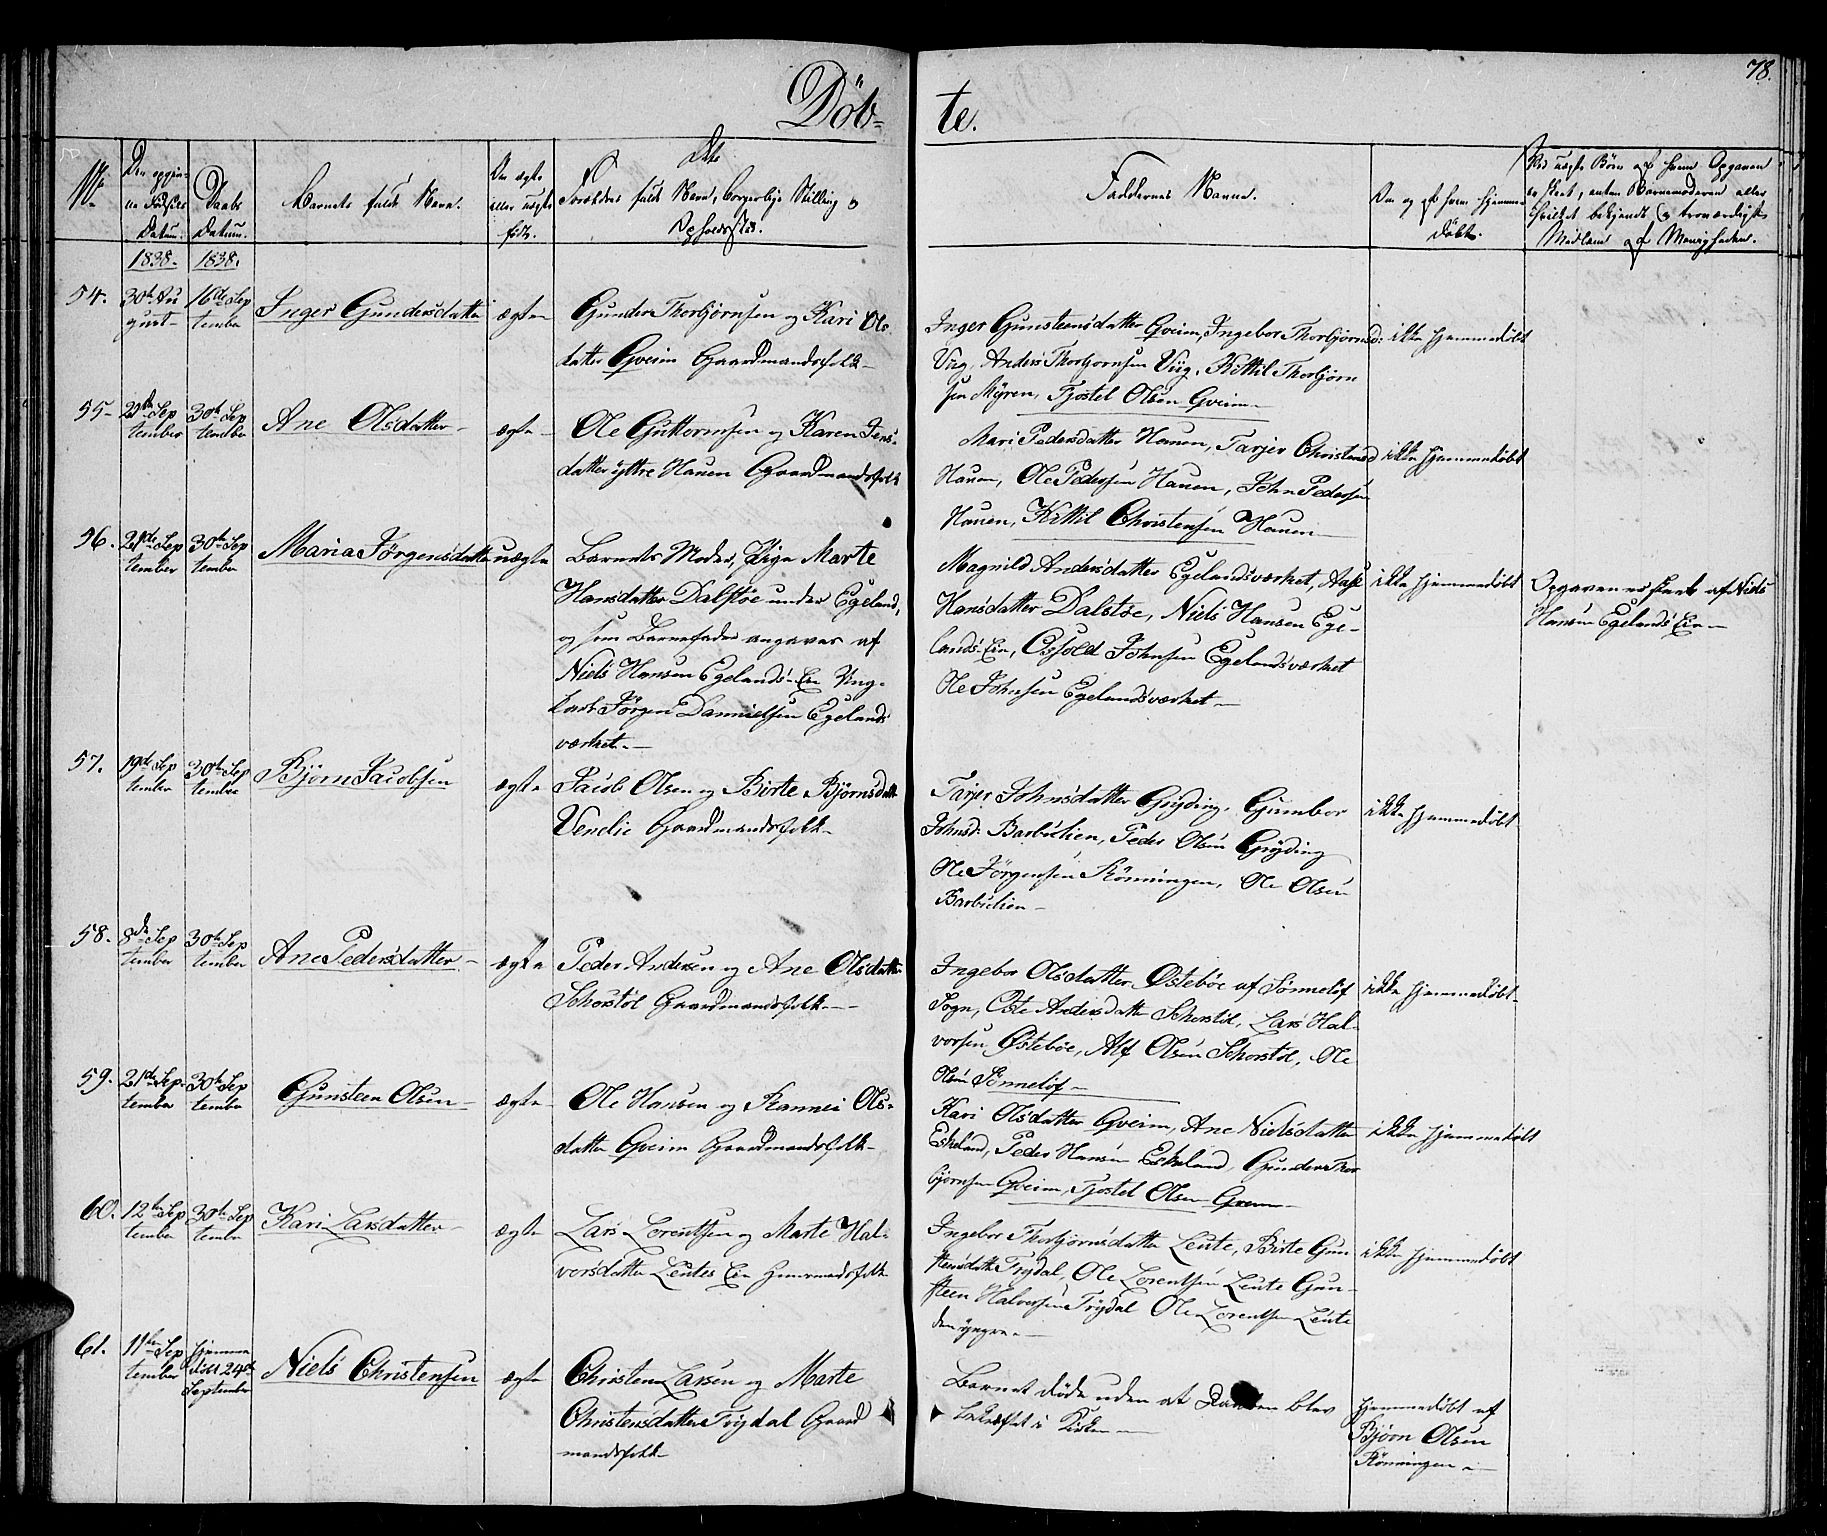 78.
Döb-
te.
No.
Den opgiv-
ne Fødsels
Datum.
Daabs
Datum.
Barnets fulde Navn.
Om ægte
eller uægte
født.
Dets
Forældres fulde Navn, borgerlige Stilling og
Opholdssted.
Faddernes Navne.
Om og af hvem hjemme-
døbt.
Ved uægte Børn af hvem Opgaven
er skeet, enten Barnemoderen eller
hvilket bekjendt og troværdigt
Medlem af Menigheden.
1838.
1838.
54.
30te Au
gust
16de Sep
tember
Inger Gundersdatter
ægte
Gunder Thorbjørnsen og Kari Ols
datter Qveim Gaardmandsfolk
Inger Gunsteensdatter Qveim, Ingebor Thorbjørnsd:
Viig, Anders Thorbjørnsen Viig, Kittil Thorbjørn
sen Myren, Tjostel Olsen Qveim
ikke hjemmedøbt
55
tember
30te Sep
tember
Ane Olsdatter
ægte
Ole Guttormsen og Karen Jens
datter yttre Hauen Gaardmandsfolk
Mari Pedersdatter Hauen, Tarjer Christensd
Hauen, Ole Pedersen Hauen, John Pedersen
Hauen, Kittil Christensen Hauen
ikke hjemmedøbt
56.
21de Sep
tember
30te Sep
tember
Maria Jørgensdatter
uægte
Barnets Moder, Pige Marte
Hansdatter Dalstøe under Egeland,
og som Barnefader angaves af
Niels Hansen Egelands-Eie Ung-
karl Jørgen Danielsen Egelands
værket.
Magnild Andersdatter Egelandsværket, Aase
Hansdatter Dalstøe, Niels Hansen Ege-
lands-Eie, Osfold Johnsen Egelandsværket
Ole Johnsen Egelandsværket
ikke hjemmedøbt
Opgaven er skeet af Niels
Hansen Egelands Eie
57.
19de Sep
tember
30te Sep
tember
Bjørn Jacobsen
ægte
Jacob Olsen og Birte Bjørnsdatter
Vendlie Gaardmandsfolk
Tarjer Johnsdatter Gryding, Gumbor
Johnsd: Barbulien, Peder Olsen Gryding
Ole Jørgensen Rönningen, Ole Olsen
Barbulien
ikke hjemmedøbt
58.
8de Sep
tember
30te Sep
tember
Ane Pedersdatter
ægte
Peder Andersen og Ane Olsdatter
Schorstøl Gaardmandsfolk
Ingebor Olsdatter Østebøe af Sønneløf
Sogn, Oste Andersdatter Schorstøl, Lars Hal-
vorsen Østebøe, Alf Olsen Schorstøl, Ole
Olsen Sønneløf
ikke hjemmedøbt
59.
21de Sep
tember
30te Sep
tember
Gunsteen Olsen
ægte
Ole Hansen og Rannei Ols-
datter Qveim Gaardmandsfolk
Kari Olsdatter Qveim, Ane Nielsdatter
Eskeland, Peder Hansen Eskeland, Gunder Thor
bjørnsen Qveim, Tjostel Olsen Qveim
ikke hjemmedøbt
60.
12te Sep
tember
30te Sep
tember
Kari Larsdatter
ægte
Lars Lorentsen og Marte Hal-
vorsdatter Leutes Eie
Ingebor Thorbjørnsdatter Leute, Birte Gun-
steensdatter Trydal, Ole Lorentsen Leute Gun-
steen Halvorsen Trydal Ole Lorentsen Leute
den yngre
ikke hjemmedøbt
61.
11te Sep
tember
hjemme
døbt 24de
September
Niels Christensen
ægte
Christen Larsen og Marte
Christensdatter Trydal Gaard
mandsfolk
Barnet døde uden at Daaben blev
bekræftet i Kirken
hjemmedøbt af
Bjørn Olsen
Rönningen